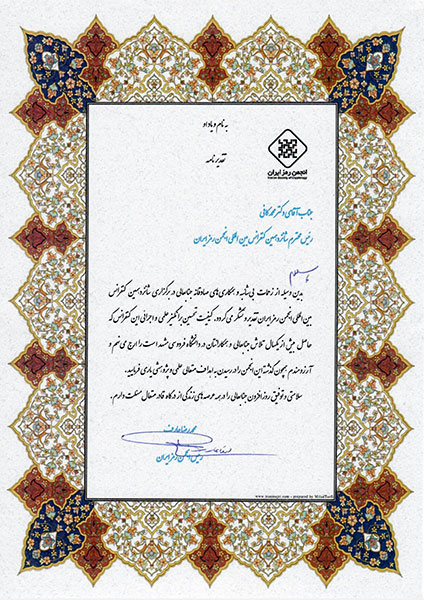 به نام و یاد او
تقدیرنامه
انجمن رمز ایران
Iranian Society of Cryptology
جناب آقای دکتر محمد کافی
رئیس محترم شانزدهمین کنفرانس بین المللی انجمن رمز ایران
با سلام
بدین وسیله از زحمات بی شائبه و همکاری های صادقانه جنابعالی در برگزاری شانزدهمین کنفرانس
بین المللی انجمن رمز ایران تقدیر و تشکر می گردد. کیفیت تحسین برانگیز علمی و اجرایی این کنفرانس که
حاصل بیش از یکسال تلاش جنابعالی و همکارانتان در دانشگاه فردوسی مشهد است را ارج می نهم و
آرزومندم همچون گذشته این انجمن را در رسیدن به اهداف متعالی علمی و پژوهشی یاری فرمایید.
سلامتی و توفیق روزافزون جنابعالی را در همه عرصه های زندگی از درگاه قادر متعال مسئلت دارم.
محمدرضا عارف
رئیس انجمن رمز ایران